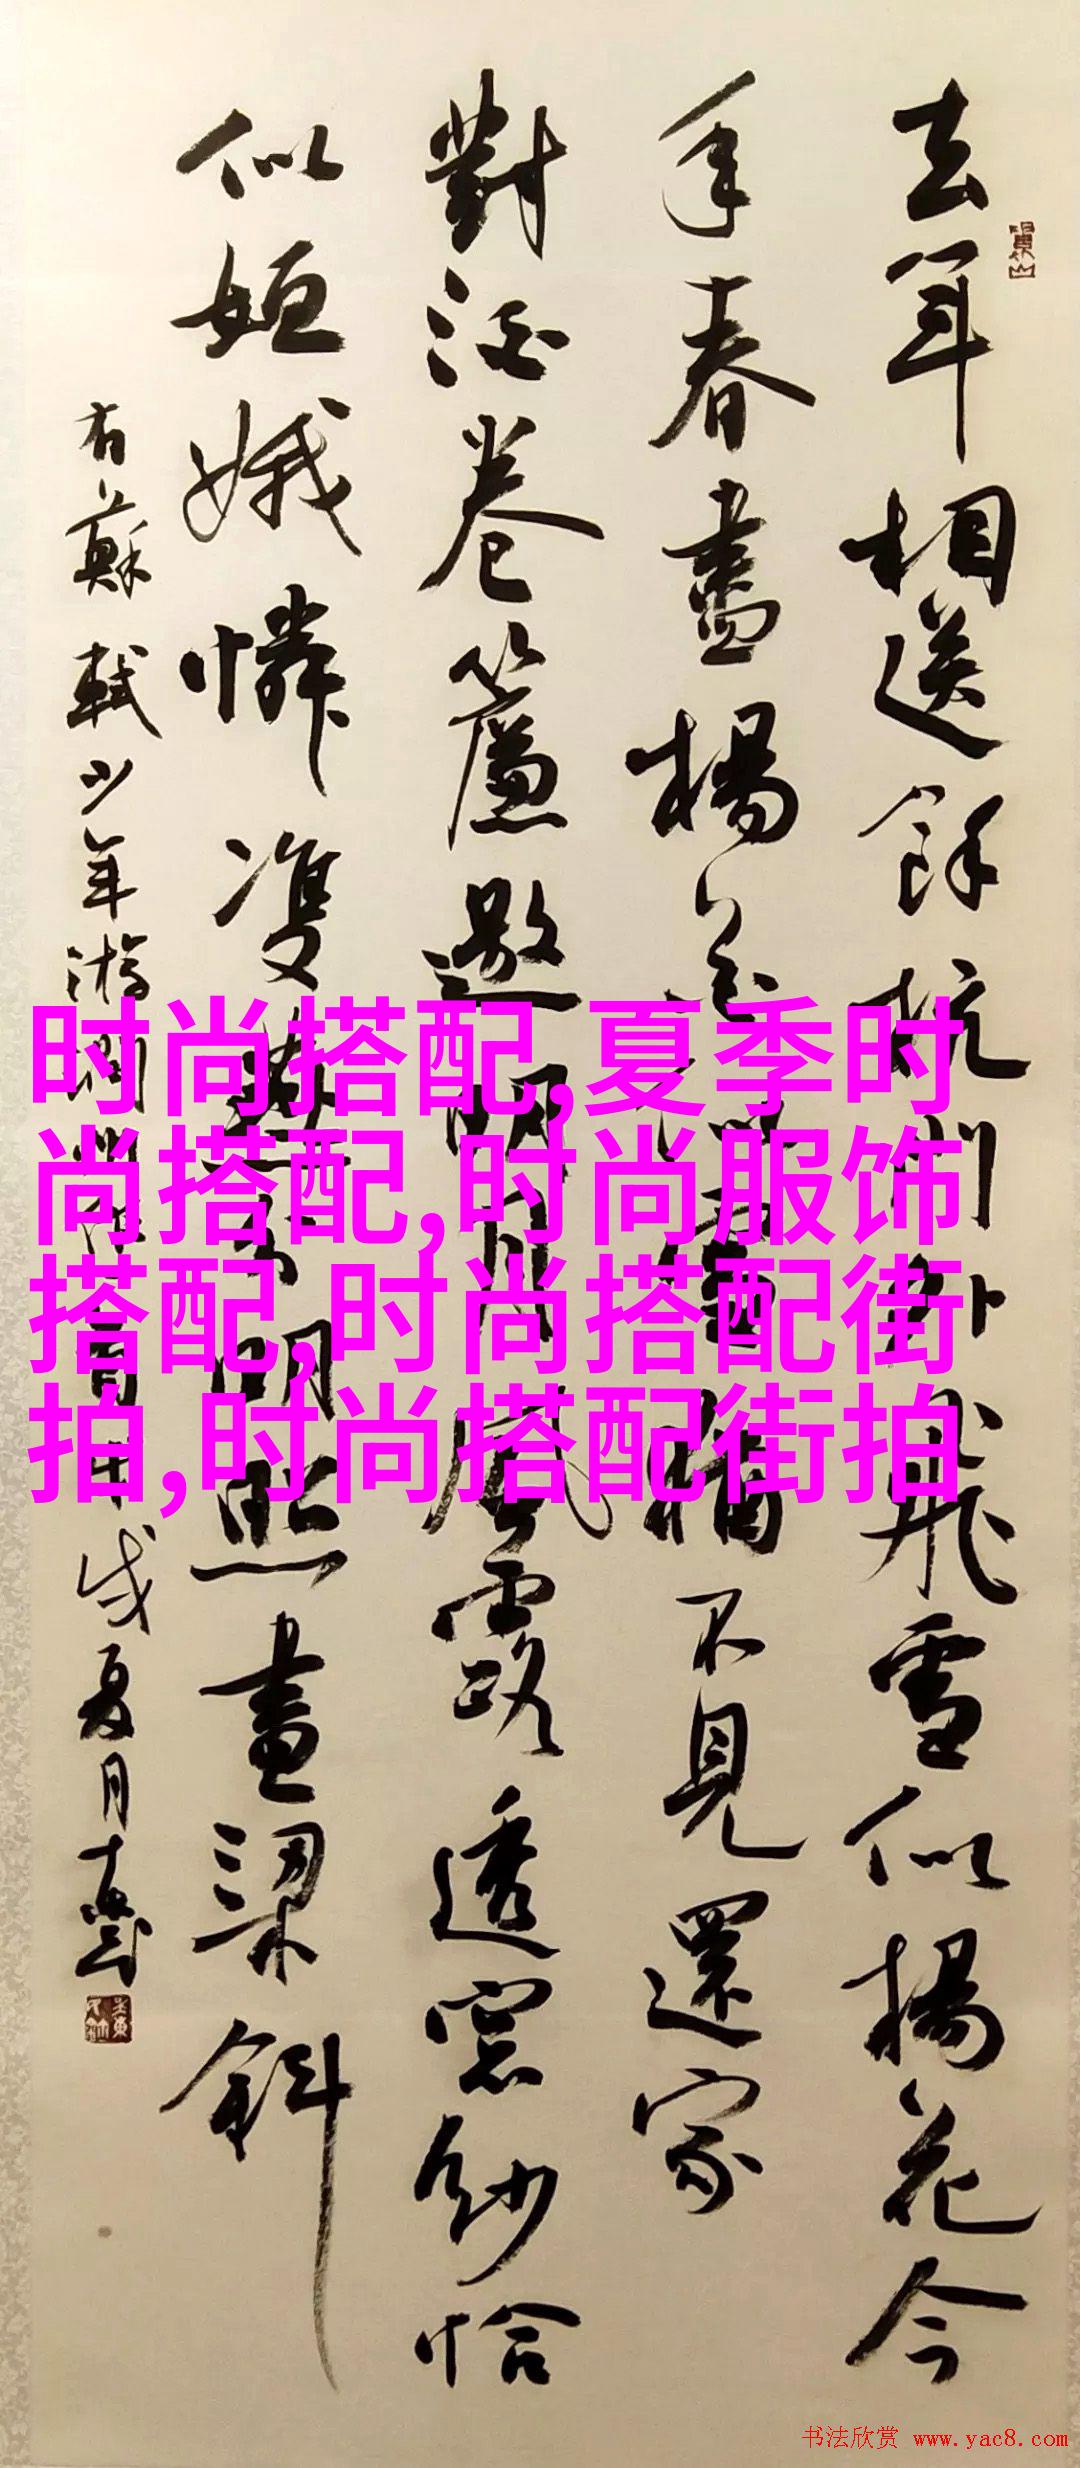 去年相送餘杭門外飛雪似楊花今
年春盡楊花似雪猶不見還家
對酒卷簾邀明月風露透窓紗恰
似姮娥憐雙燕分明照畫梁斜
右蘇軾少年游潤州戌夏月
时尚搭配,夏季时
尚搭配,时尚服饰
搭配,时尚搭配街
拍,时尚搭配街拍
书法欣赏 www.yac8.com